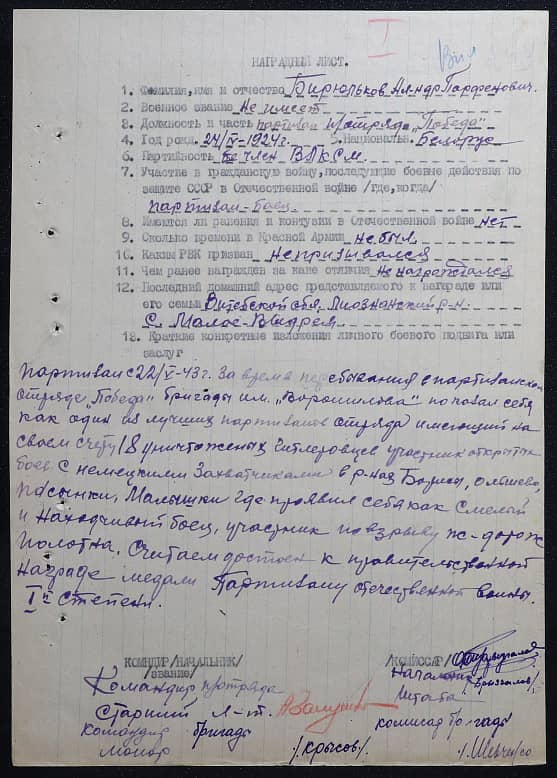 I
НАГРАДНЫЙ ЛИСТ.
1. Фамилия,имя и отчество Бирюльков Ал-ндр Парфенович.
2. Военное звание Не имеет
3. Должность и часть партизан п/отряда „Победа"
4. Год рожд. 24/IV-1924г. 5. Националь. Беларус
6. Партийность член ВЛКСМ.
7. Участие в гражданскую войну,последующие боевые действия по
защите СССР в Отечественной войне /где,когда/
партизан-боец
8. Имеются ли ранения и контузии в Отечественной войне нет
9. Сколько времени в Красной Армии не был
10. Каким РВК призван непризывался
11. Чем ранее награжден за какие отличия не награждался
12. Последний домашний адрес представляемого к награде или
его семьи Витебской обл. Лиозненский р-н.
с. Малое-Выдрея
13. Краткие конкретные изложения личного боевого подвига или
заслуг
Партизан с 22/V-43г. За время пребывания в партизанском
отряде „Победа" бригады им. „Ворошилова" показал себя
как один из лучших партизанов отряда имеющий на
своем счету 18 уничтоженых гитлеровцев участник открытых
боев с немецкими захватчиками в р-нах Борисы,
Малышки где проявил себя как смелый
и находчивый боец, участник по взрыву ж-дорож
полотна. Считаем достоен к правительственной
награде медали Партизану отечественной воины.
I й степени.
КОМАНДИР/НАЧАЛЬНИК/ /КОМИССАР/
/звание/ Начальник
Командир п/отряда штаба
Старший л-т.
Командир бригады комисар бригады
майор /.Крысов/. /.Шевченко